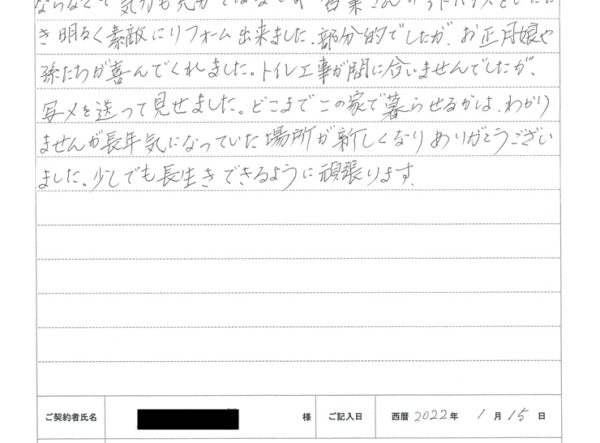 き明るく素敵にリフォーム出来ました。部分的でしたが、お正月娘や
孫たちが喜んでくれました。トイレ工事が間に合いませんでしたが、
写メを送って見せました。どこまでこの家で暮らせるかは、わかり
ませんが長年気になっていた場所が新しくなりありがとうござい
ました。少しでも長生きできるように頑張ります。
ご契約者氏名 様 ご記入日 西暦 2022 年 1 月 15 日